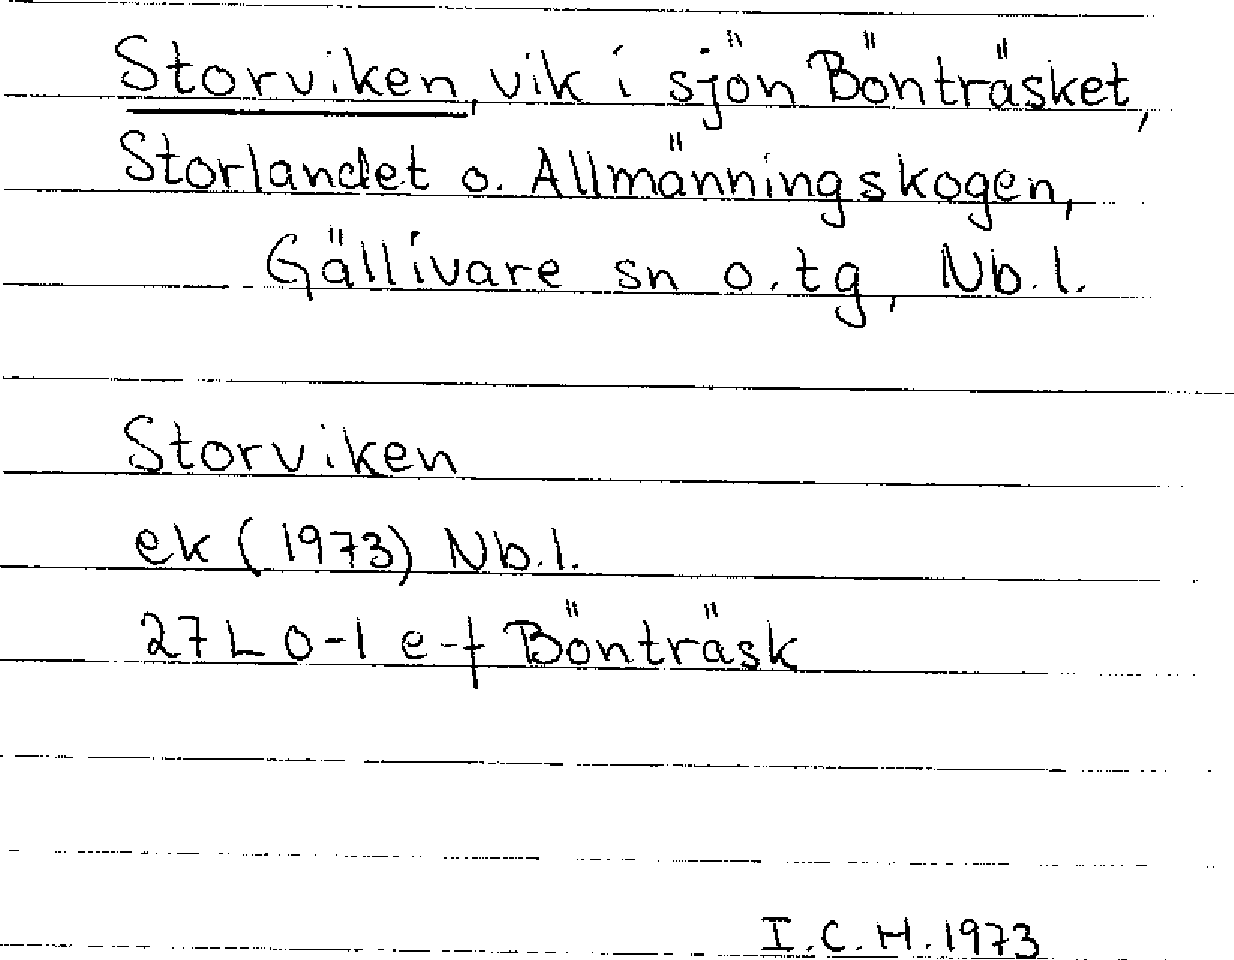 Storviken, vik i sjön Bönträsket,
Storlandet o. Allmänningskogen,
Gällivare sn o. tg, Nb.l.
Storviken
ek (1973) Nb.l.
27L 0-1 e-f Bönträsk
I.C.H. 1973